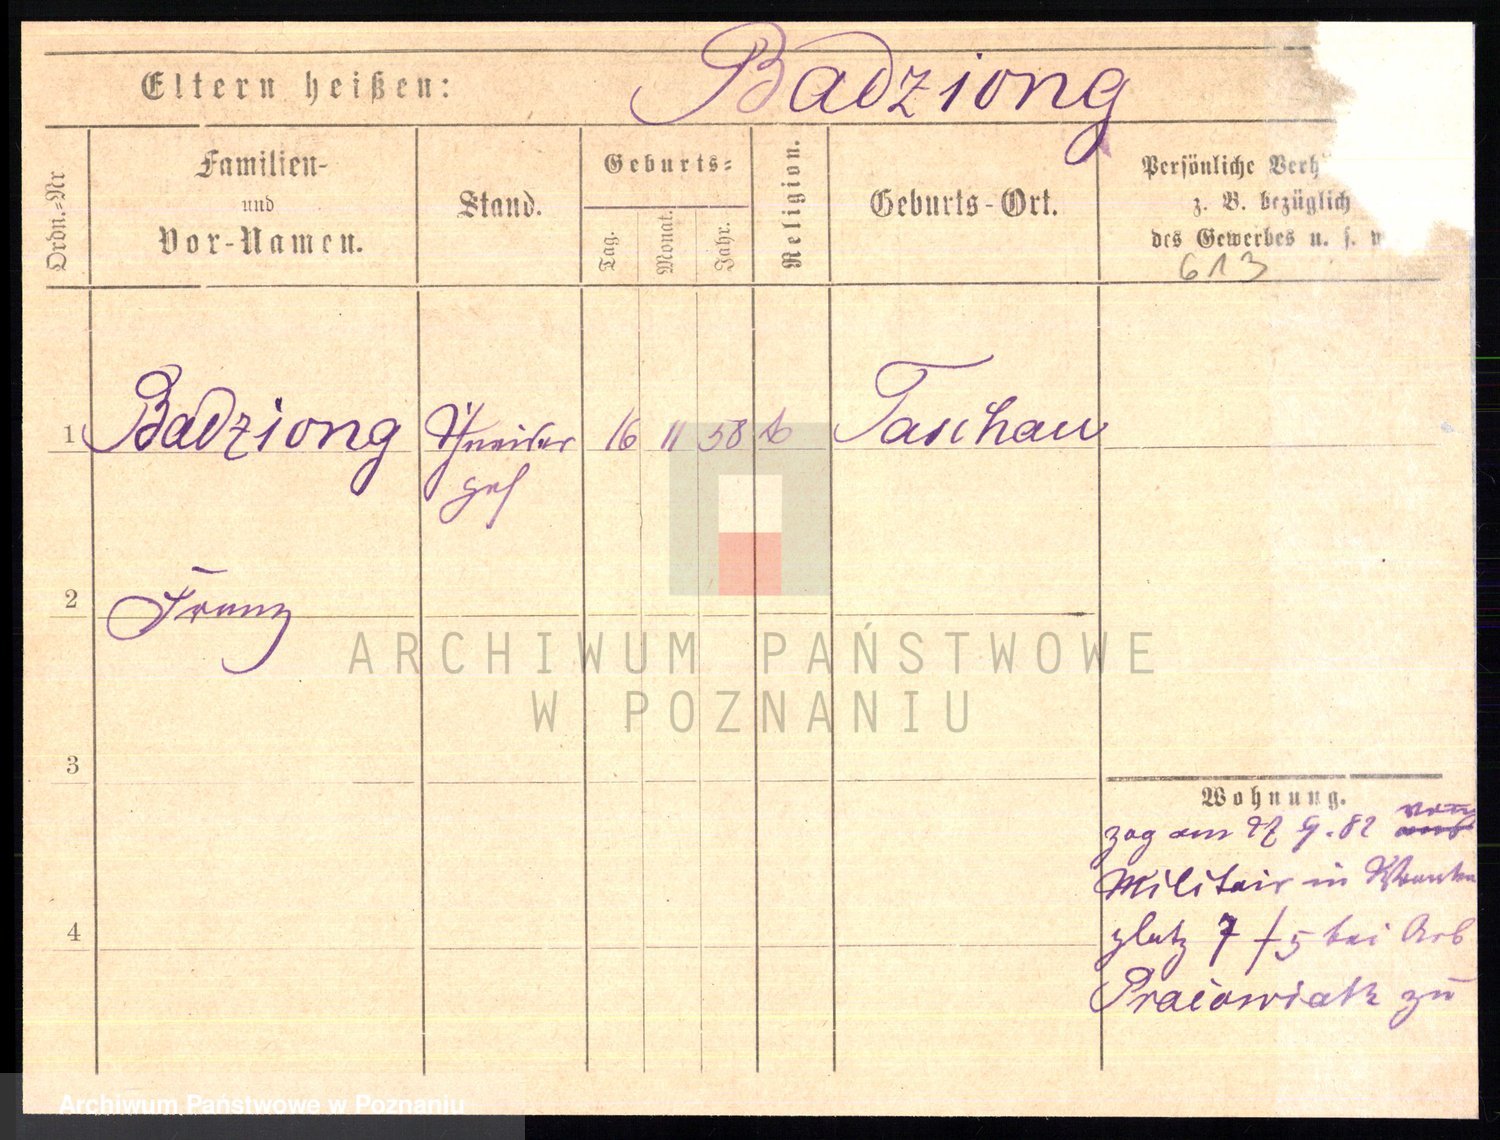 Badziong
Eltern heißen:
Ordn.-Nr
Familien-
und
Vor-Namen.
Stand.
Geburts-
Tag.
Monat.
Jahr.
Religion.
Geburts-Ort.
Persönliche Verh
z. B. bezüglich
des Gewerbes u. s. w
613
1 Badziong Schneider 16 11 58 Taschau
ges
2 Franz
3
4
Wohnung.
zog am 27 9. 82 vom
Militair in
platz 7 / 5 bei Arb
Praiowiak zu
ARCHIWUM PAŃSTWOWE
W POZNANIU
Archiwum Panstwowe w Poznaniu